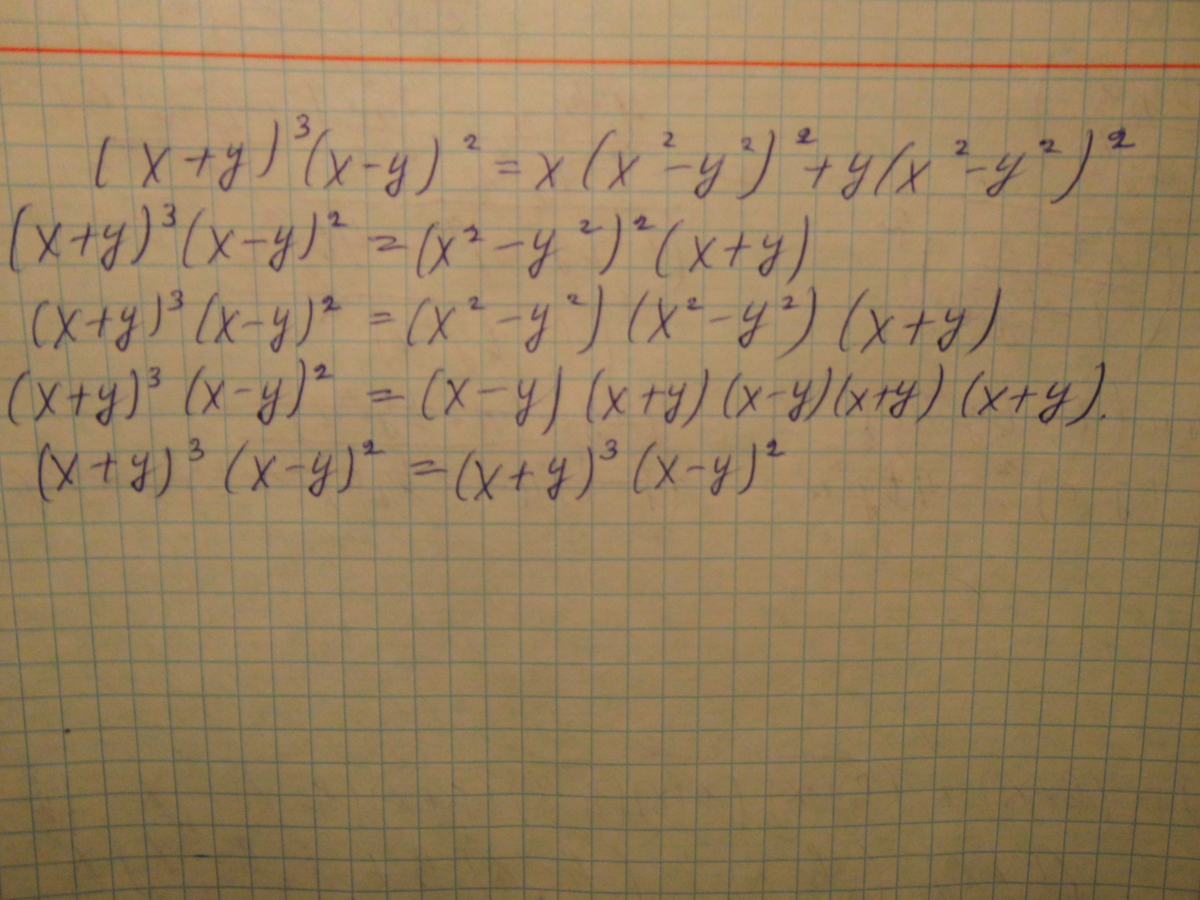 (x+y)³(x-y)²=x(x²-y²)²+y(x²-y²)²
(x+y)³(x-y)²=(x²-y²)²(x+y)
(x+y)³(x-y)²=(x²-y²)(x²-y²)(x+y)
(x+y)³(x-y)²=(x-y)(x+y)(x-y)(x+y)(x+y).
(x+y)³(x-y)²=(x+y)³(x-y)²